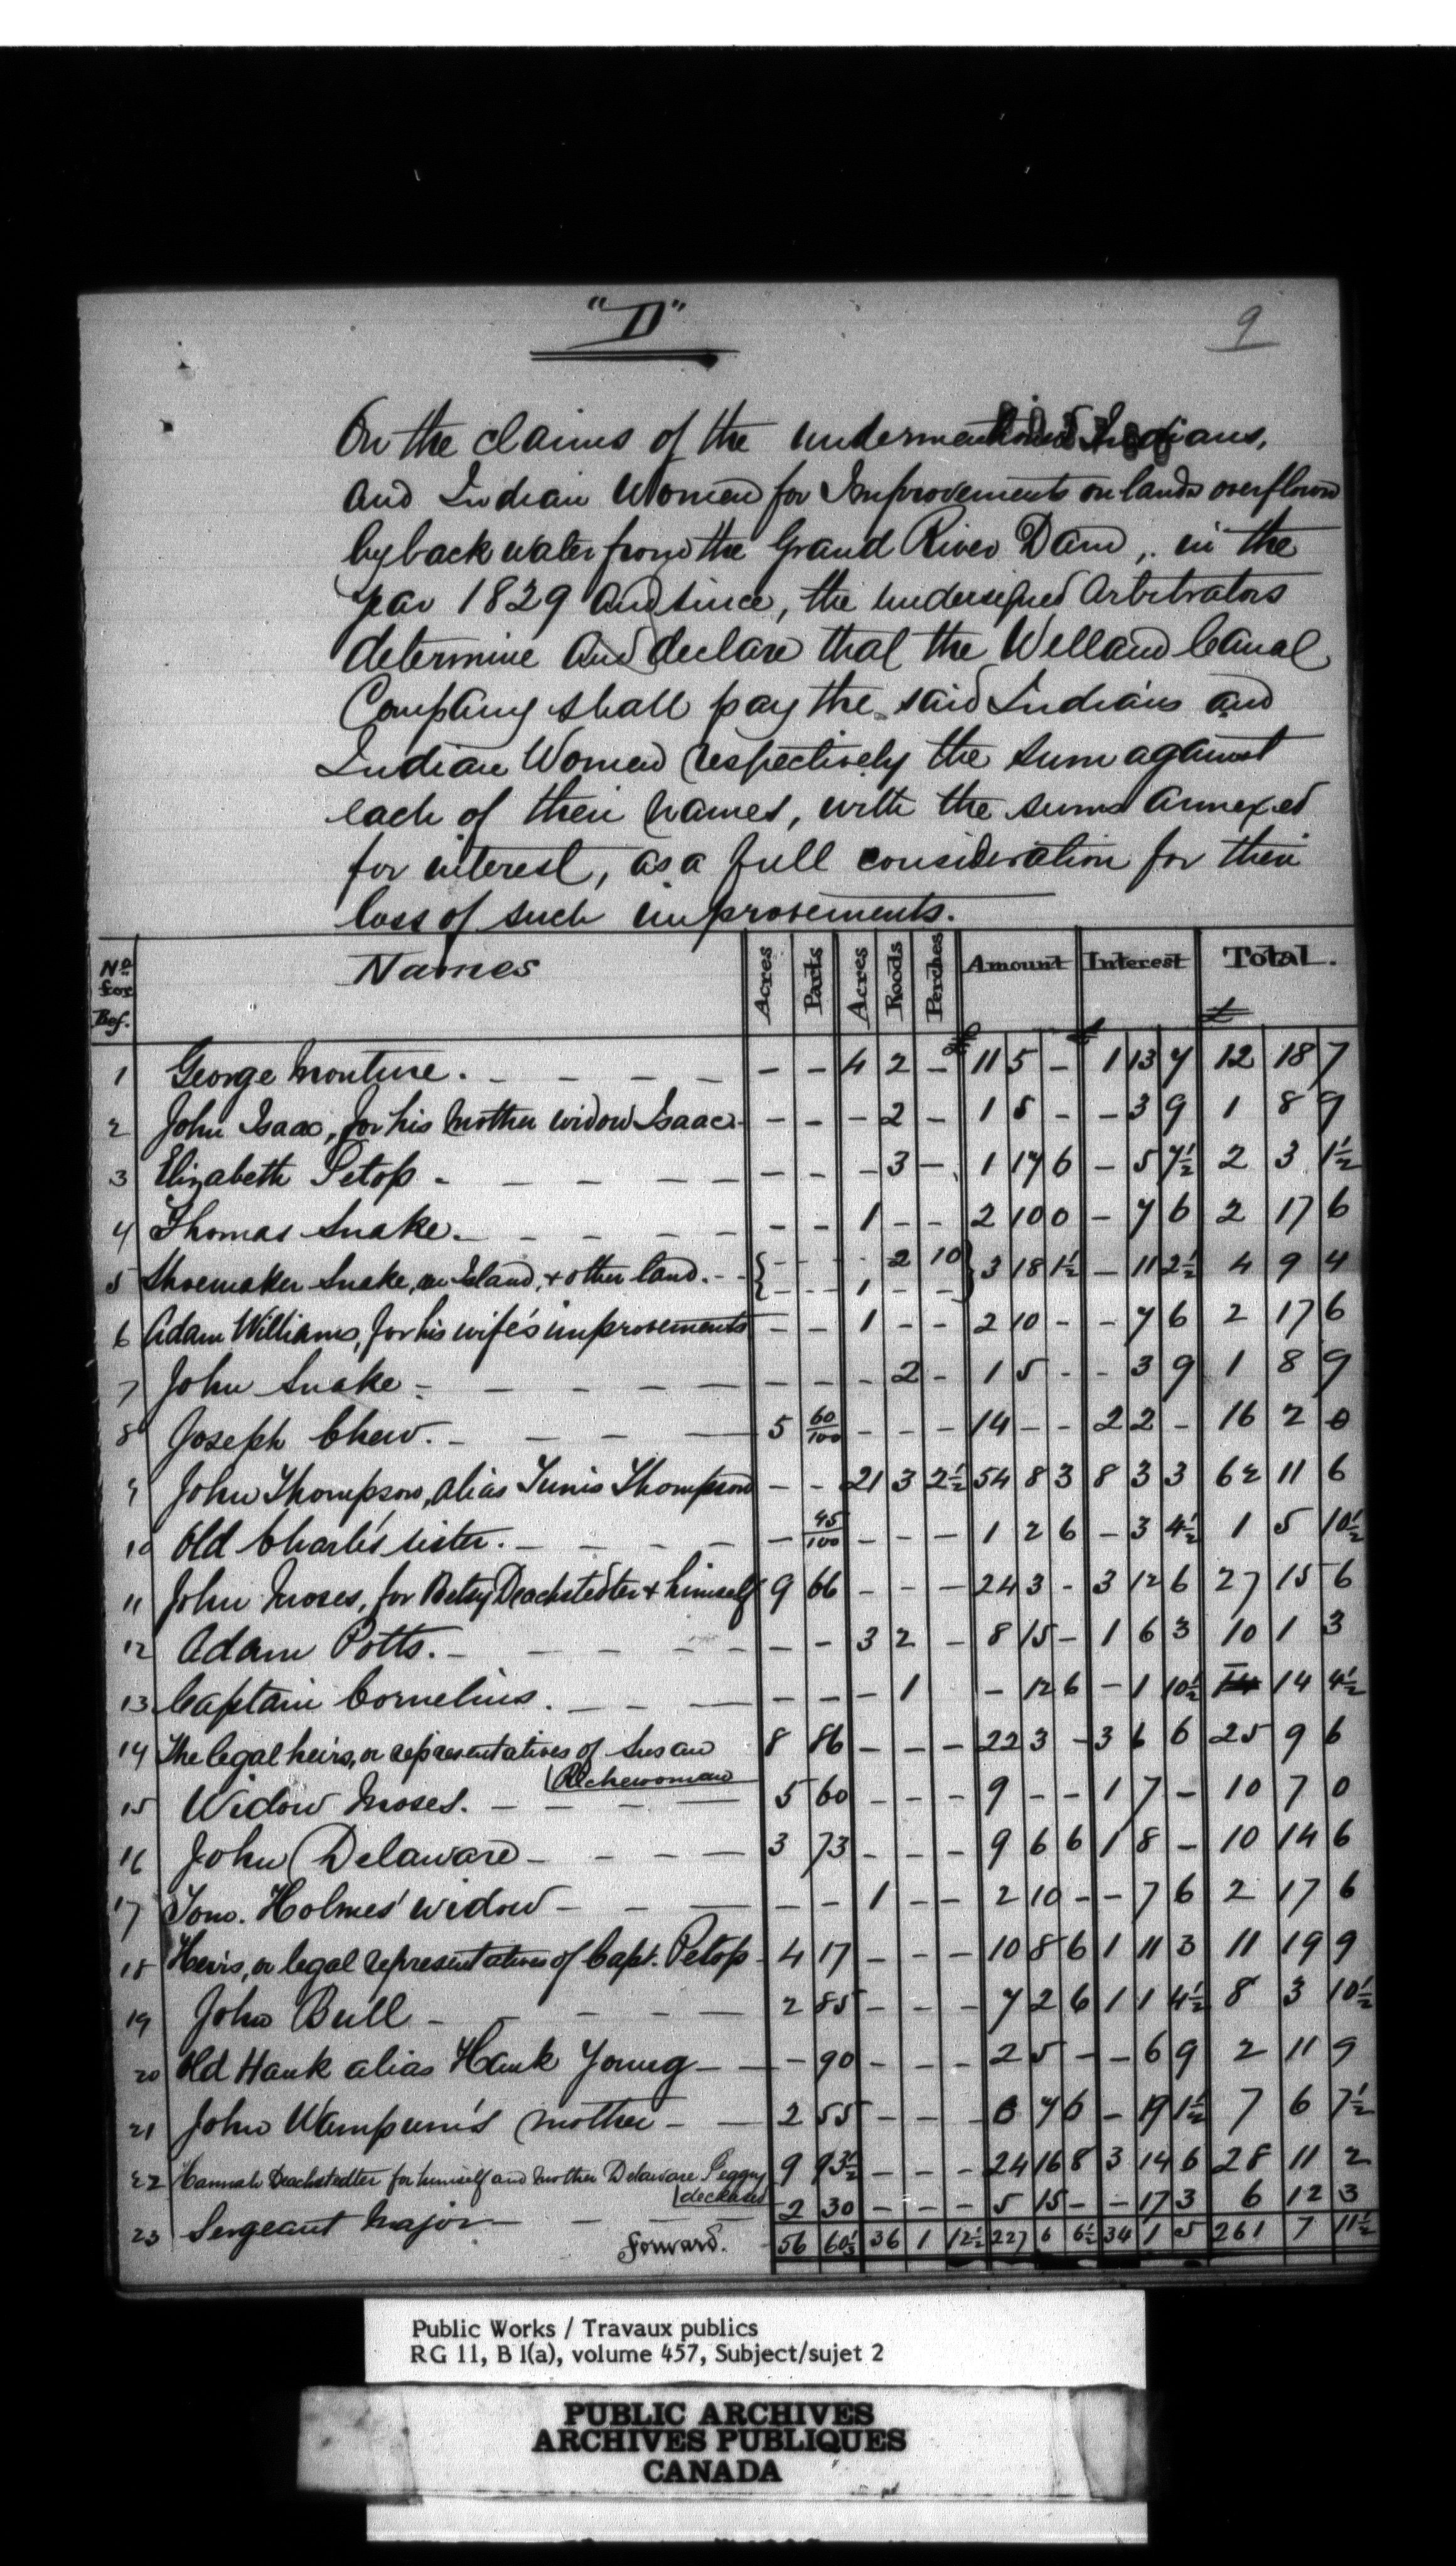 "D"
9
On the claims of the undermentioned Indians,
and Indian Women for Improvements on lands overflown
by back water from the Grand River Dam, in the
year 1829 and since, the undersigned Arbitrators
determine and declare that the Welland Canal
Company shall pay the said Indians and
Indian Women respectively the sum against
each of their names, with the sums annexed
for interest, as a full consideration for their
loss of such improvements.
No for Ref. Names Acres Parts Acres Roods Perches Amount Interest Total.
£ £ £
1 George Monture. - - - - - - 4 2 - 11 5 - 1 13 7 12 18 7
2 John Isaac, for his mother widow Isaac - - - - 2 - 1 5 - - 3 9 1 8 9
3 Elizabeth Petop - - - - - - - - 3 - 1 17 6 - 5 7½ 2 3 1½
4 Thomas Snake. - - - - - - 1 - - 2 10 0 - 7 6 2 17 6
5 Shoemaker Snake, an Island, & other land. - { - - - 2 10 } 3 18 1½ - 11 2½ 4 9 4
{ - - 1 - - }
6 Adam Williams, for his wife's improvements - - 1 - - 2 10 - - 7 6 2 17 6
7 John Snake - - - - - - - 2 - 1 5 - - 3 9 1 8 9
8 Joseph Chew. - - - - 5 60/100 - - - 14 - - 2 2 - 16 2 0
9 John Thompson, alias Tunis Thompson - - 21 3 2½ 54 8 3 8 3 3 62 11 6
10 Old Charles' sister. - - - - - 45/100 - - - 1 2 6 - 3 4½ 1 5 10½
11 John Moses, for Betsy Deachstedter & himself 9 66 - - - 24 3 - 3 12 6 27 15 6
12 Adam Potts. - - - - - - 3 2 - 8 15 - 1 6 3 10 1 3
13 Captain Cornelius. - - - - - - 1 - 12 6 - 1 10½ 14 4½
14 The legal heirs, or representatives of Susan 8 86 - - - 22 3 - 3 6 6 25 9 6
15 Widow Moses. - - - - 5 60 - - - 9 - - 1 7 - 10 7 0
16 John Delaware - - - - 3 73 - - - 9 6 6 1 8 - 10 14 6
17 Tom. Holmes' widow - - - - - 1 - - 2 10 - - 7 6 2 17 6
18 Heirs, or legal representatives of Capt. Petop - 4 17 - - - 10 8 6 1 11 3 11 19 9
19 John Bull - - - - 2 85 - - - 7 2 6 1 1 4½ 8 3 10½
20 Old Hank alias Hank Young - - - 90 - - - 2 5 - - 6 9 2 11 9
21 John Wampum's mother - - 2 55 - - - 6 7 6 - 19 1½ 7 6 7½
22 Hannah Deachstedter for himself and mother Delaware Peggy 9 93½ - - - 24 16 8 3 14 6 28 11 2
deceased
23 Sergeant Major - - - - 2 30 - - - 5 15 - - 17 3 6 12 3
Forward. 56 60½ 36 1 12½ 227 6 6½ 34 1 5 261 7 11½
Public Works / Travaux publics
RG 11, B 1(a), volume 457, Subject/sujet 2
PUBLIC ARCHIVES
ARCHIVES PUBLIQUES
CANADA